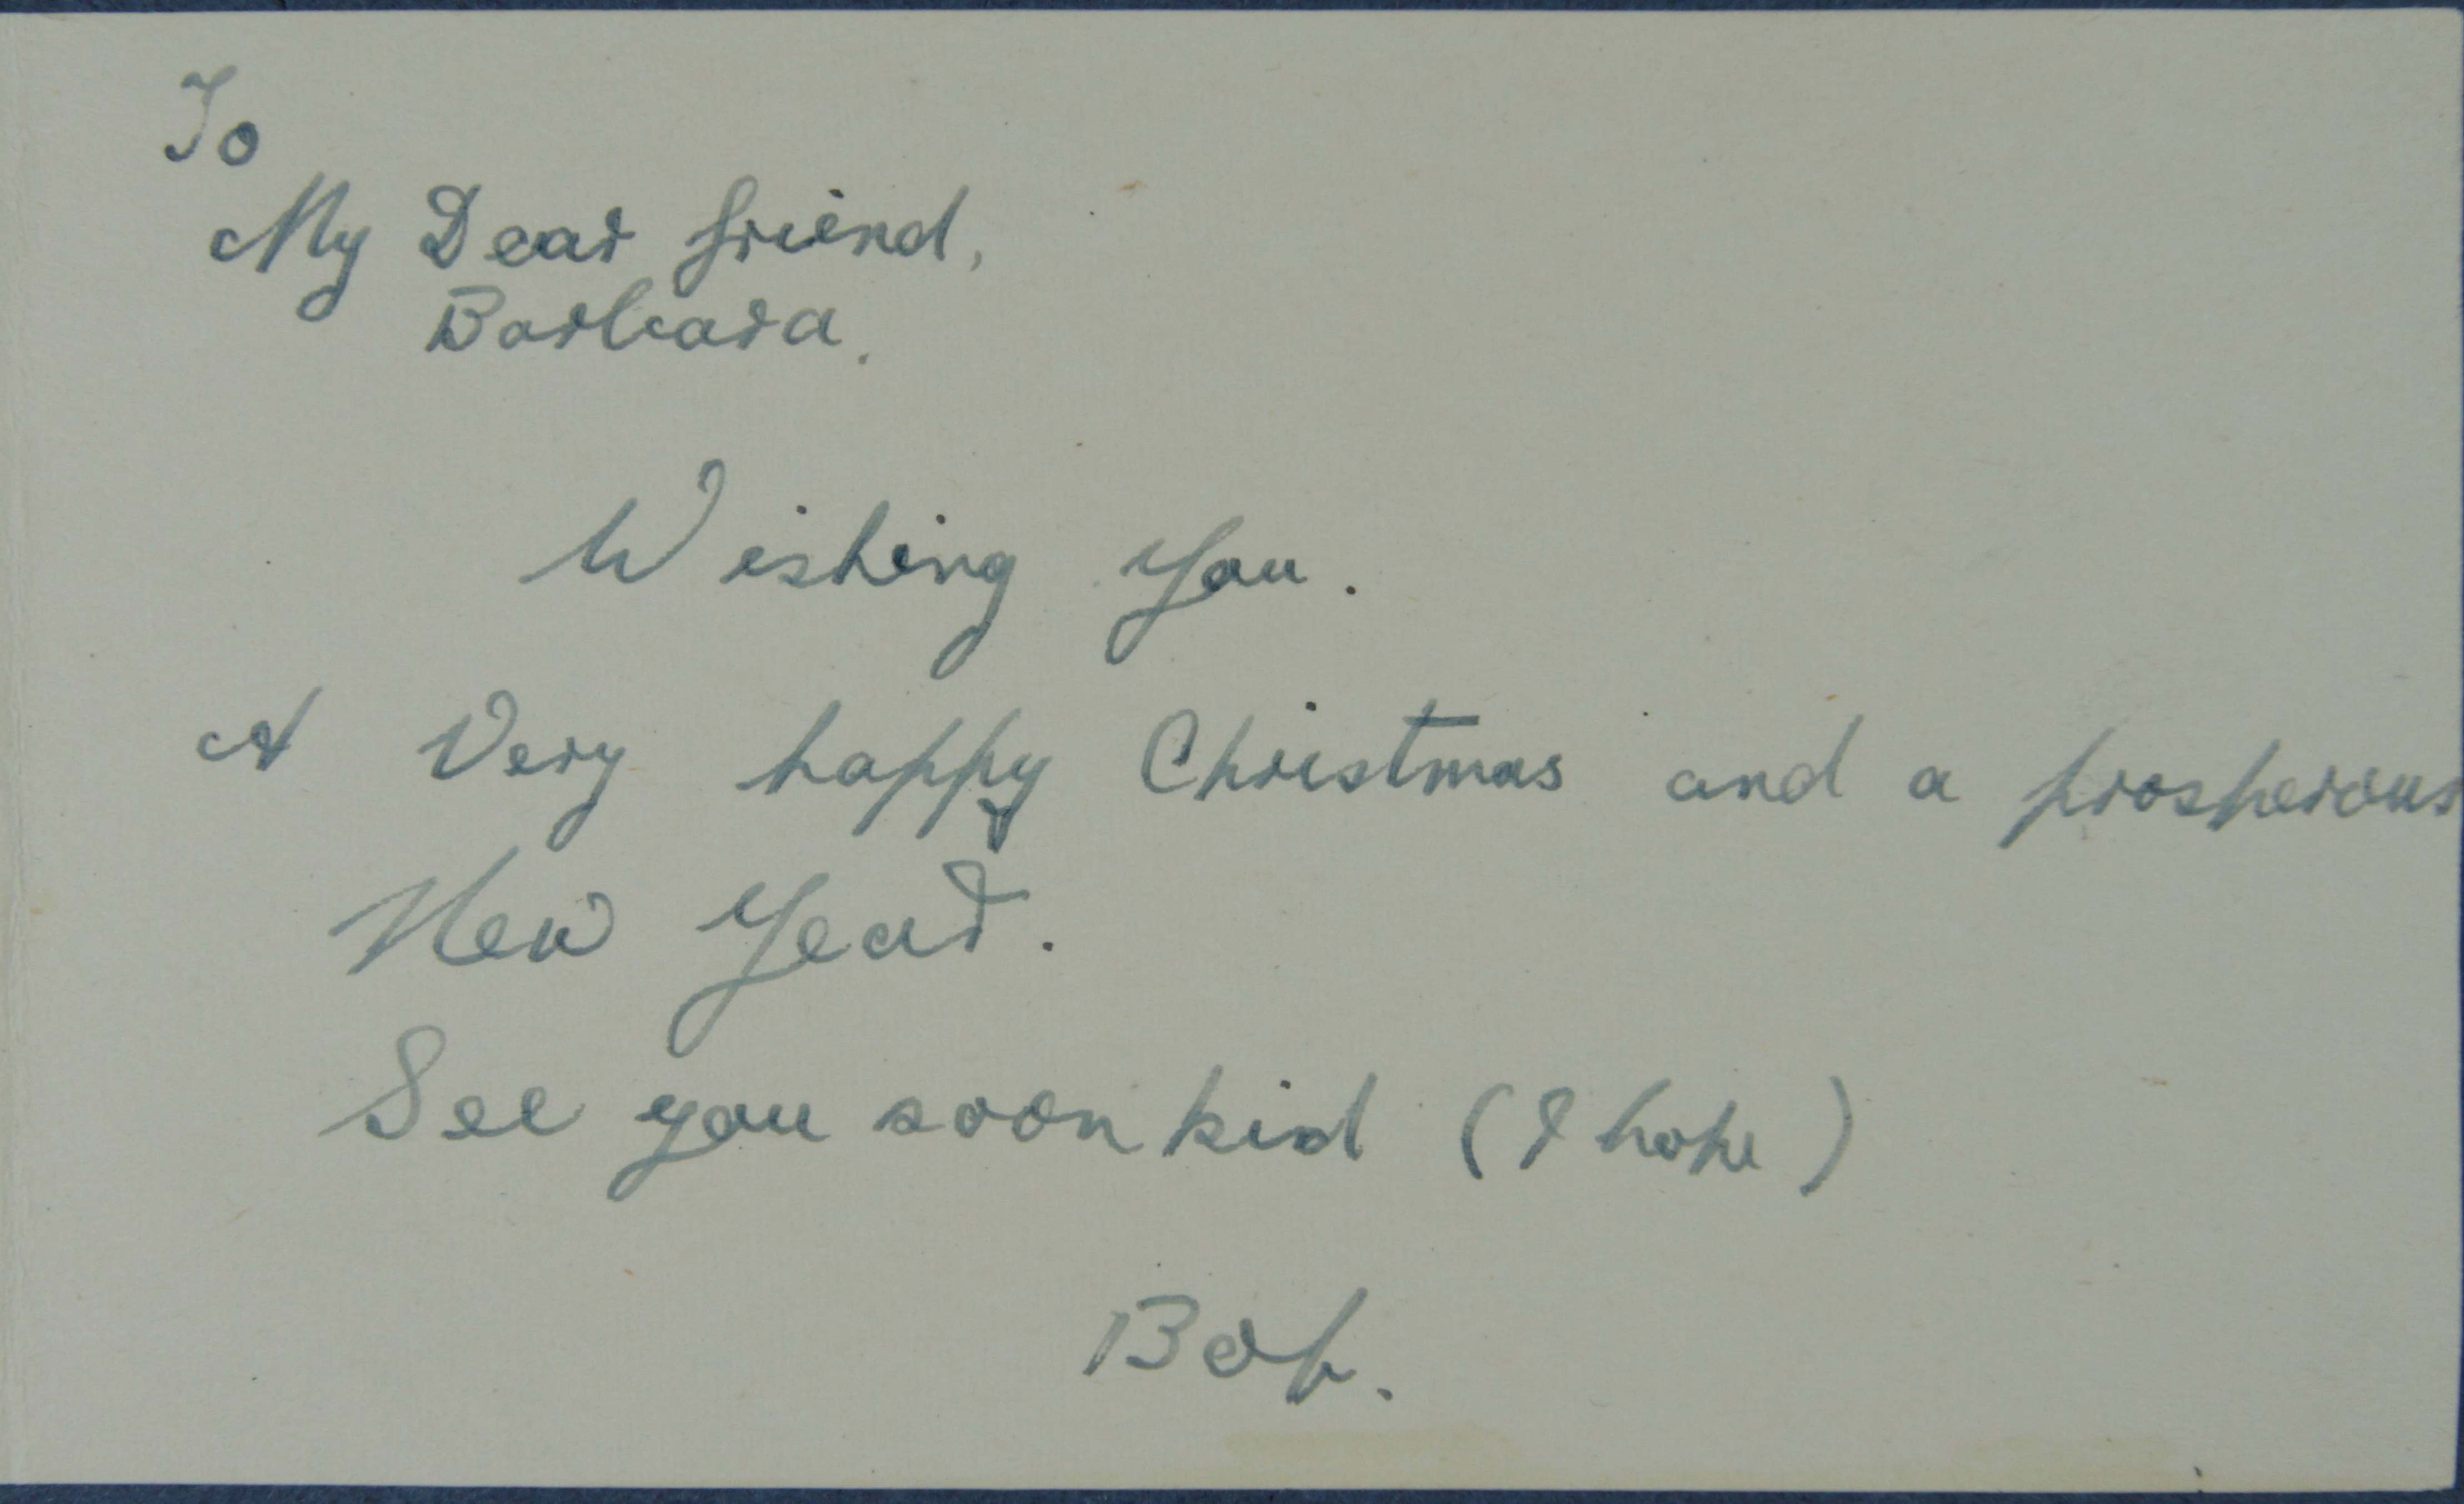 To
My Dear friend,
Barbara.
Wishing you.
A Very happy Christmas and a prosperous
New Year.
See you soon kid (I hope)
Bob.